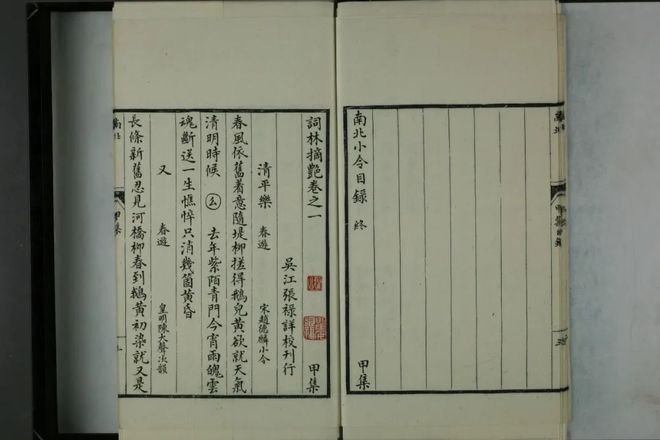 南北小令目錄 終
甲集
詞林摘艷卷之一 甲集
吳江張祿詳校刊行
清平樂 春遊 宋趙德麟小令
春風依舊着意隨堤柳搓得鵝兒黃欲就天氣
清明時候 去年紫陌青門今宵雨魄雲
魂斷送一生憔悴只消幾箇黃昏
又 春遊 皇明陳大聲次韻
長條新舊忍見河橋柳春到鵝黃初染就又是
甲集